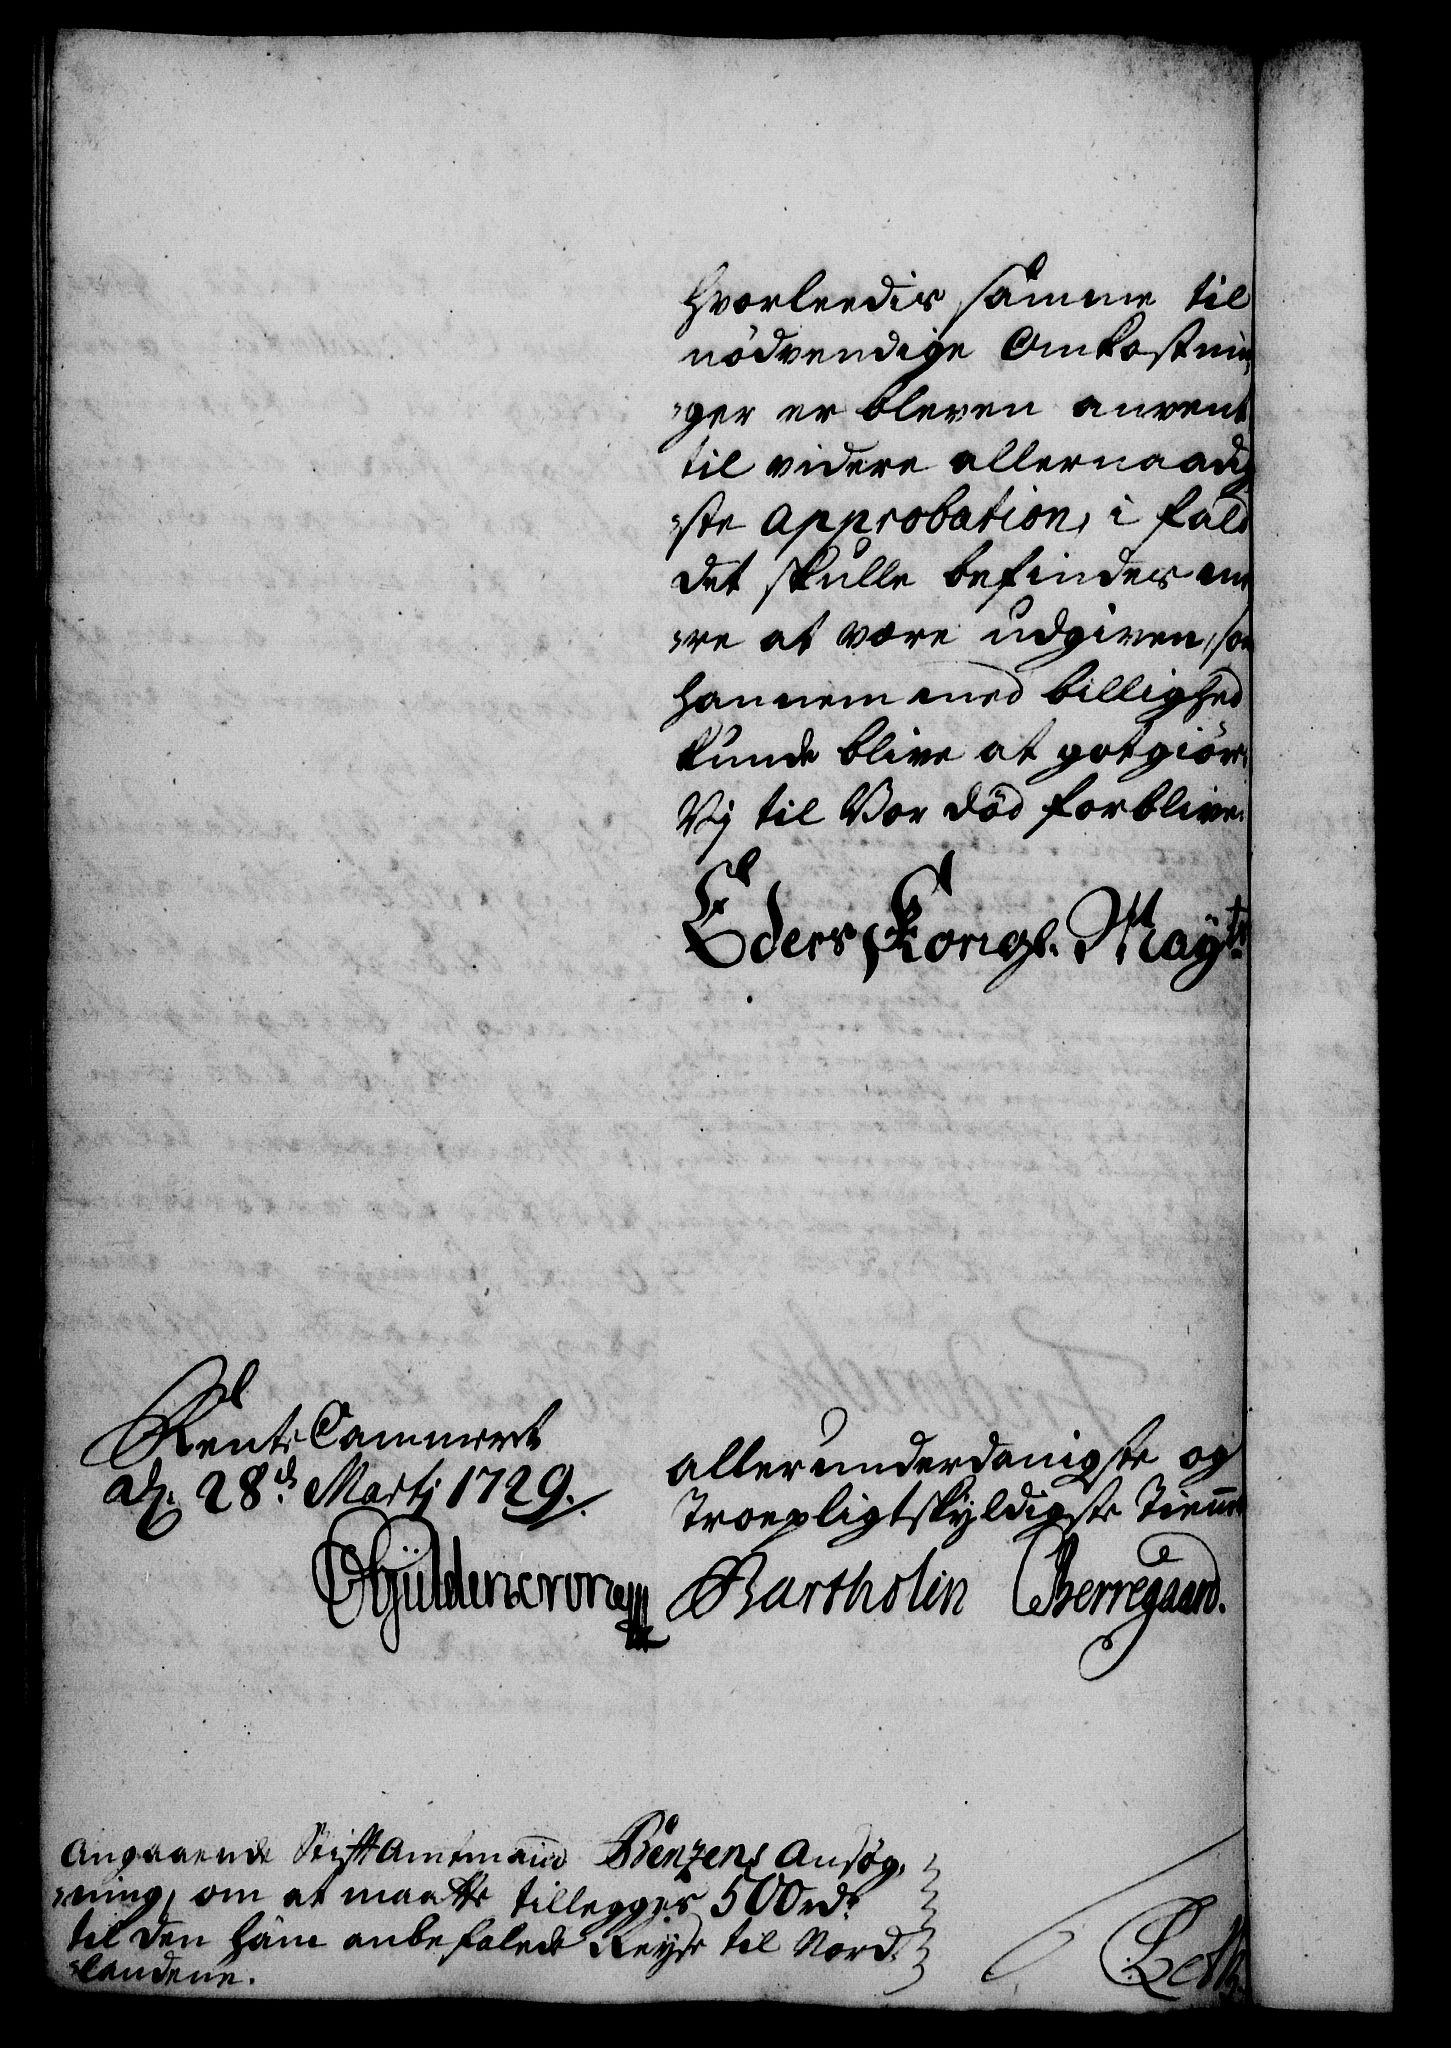 hvorleedis samme til
nödvendige Omkostnin,
,ger er bleven anvent
til videre allernaadig
,ste approbation, i fald
det skulle befindes me
,re at være udgiven, som
hannem med billighed
kunde blive at gotgiör.
Vj til Vor död forblive.
Eders Kongl. Mayts
Rente Cammeret
d. 28de Martj 1729.
allerunderdanigste og
Troepligtskyldigste Tienere
Gÿldencrone Bartholin Berregaard.
Angaaende StiftAmtmand Benzens Ansög,
,ning, om at maatte tillegges 500 rdr
til den ham anbefalede Reyse til Nord,
,landene.